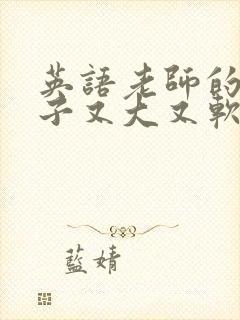 英語老師的
子又大又軟
藍婧